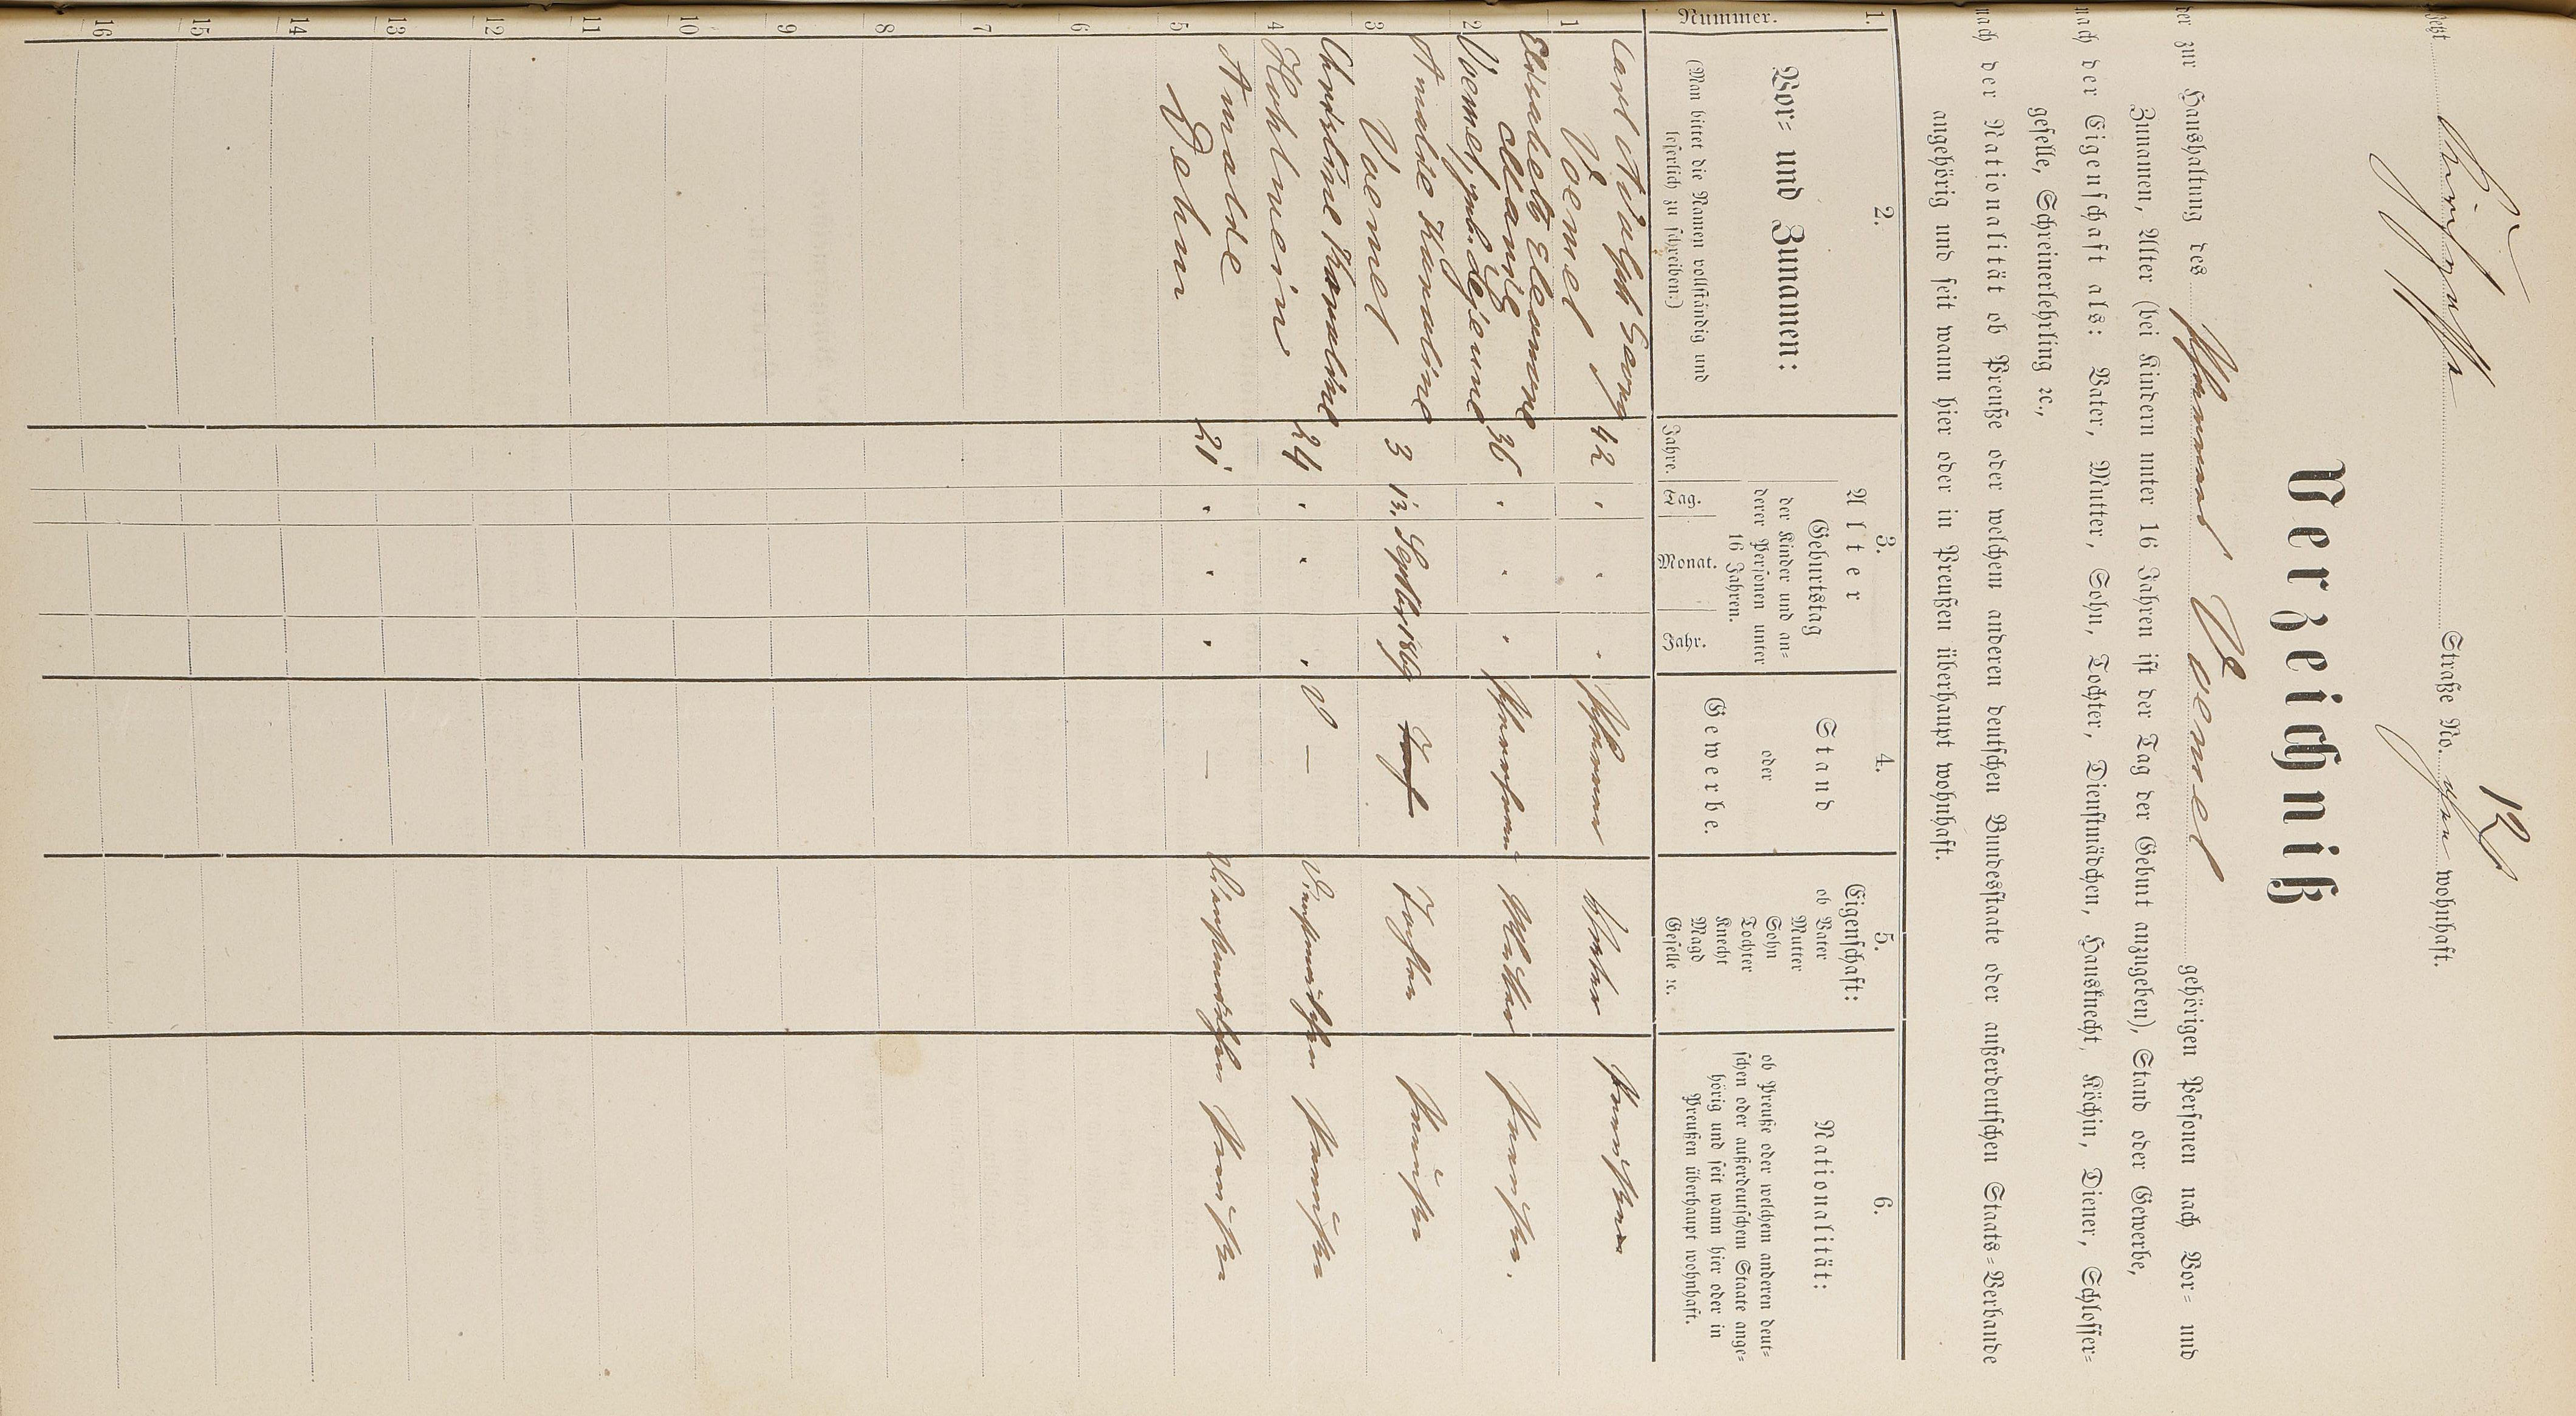 12
Straße No. wohnhaft.
Verzeichniß
der zur Haushaltung des Pfarrer Voemel gehörigen Personen nach Vor- und
Zunamen, Alter (bei Kindern unter 16 Jahren ist der Tag der Geburt anzugeben), Stand oder Gewerbe,
nach der Eigenschaft als: Vater, Mutter, Sohn, Tochter, Dienstmädchen, Hausknecht, Köchin, Diener, Schlosser-
geselle, Schreinerlehrling ꝛc.,
nach der Nationalität ob Preuße oder welchem anderen deutschen Bundesstaate oder außerdeutschen Staats-Verbande
angehörig und seit wann hier oder in Preußen überhaupt wohnhaft.
1. 2. 3. 4. 5. 6.
Nummer.
Vor- und Zunamen:
(Man bittet die Namen vollständig und
leserlich zu schreiben.)
Alter
Geburtstag
der Kinder und an-
derer Personen unter
16 Jahren.
Jahre. Tag. Monat. Jahr.
Stand
oder
Gewerbe.
Eigenschaft:
ob Vater
Mutter
Sohn
Tochter
Knecht
Magd
Geselle ꝛc.
Nationalität:
ob Preuße oder welchem anderen deut-
schen oder außerdeutschem Staate ange-
hörig und seit wann hier oder in
Preußen überhaupt wohnhaft.
1 Carl Adolph Georg
Voemel 42 Pfarrer Vater Preuße
2 Elisabeth Eleonore
Melanie
Voemel, geb. 36 Pfarrersfrau Mutter Preußin.
3 Amalde Karoline
Voemel 3 13. September 1869 Tochter Preußin
4 Christine Karoline
Hohlwein 24 — Dienstmädchen Preußin
5 Amalde
Dehn 21 — Dienstmädchen Preußin
6
7
8
9
10
11
12
13
14
15
16